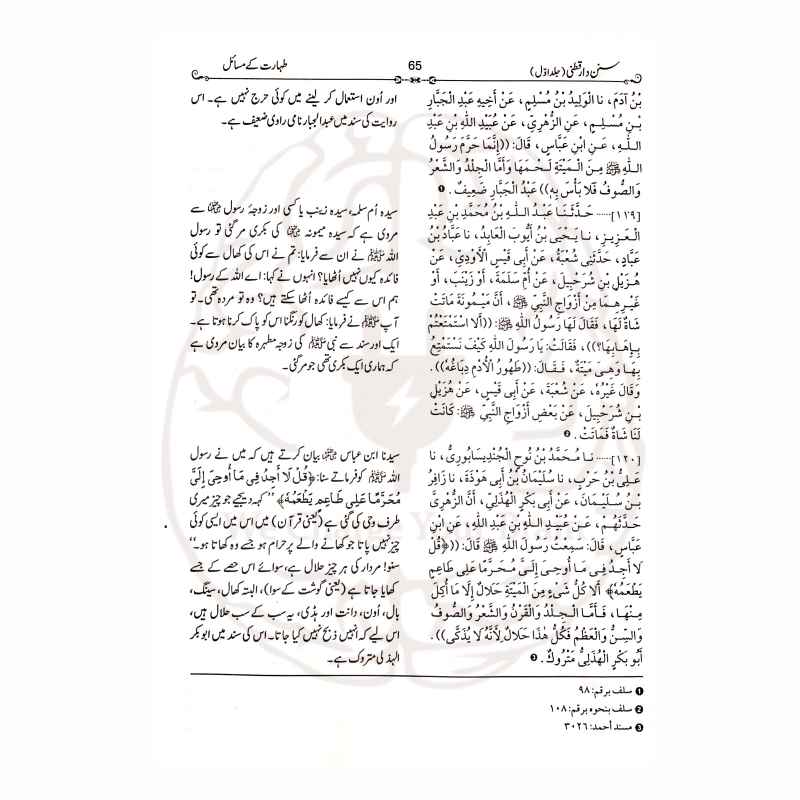 سنن دارقطنی (جلد اوّل)
65
طہارت کے مسائل
بْنُ آدَمَ ، نا الْوَلِيدُ بْنُ مُسْلِمٍ ، عَنْ أَخِيهِ عَبْدِ الْجَبَّارِ
بْنِ مُسْلِمٍ ، عَنِ الزُّهْرِيِّ ، عَنْ عُبَيْدِ اللّٰهِ بْنِ عَبْدِ
اللّٰهِ ، عَنِ ابْنِ عَبَّاسٍ ، قَالَ: ((إِنَّمَا حَرَّمَ رَسُولُ
اللّٰهِ ﷺ مِنَ الْمَيْتَةِ لَحْمَهَا وَأَمَّا الْجِلْدُ وَالشَّعْرُ
وَالصُّوفُ فَلَا بَأْسَ بِهِ)) عَبْدُ الْجَبَّارِ ضَعِيفٌ . ❶
[١١٩]...... حَدَّثَنَا عَبْدُ اللّٰهِ بْنُ مُحَمَّدِ بْنِ عَبْدِ
الْعَزِيزِ ، نا يَحْيَى بْنُ أَيُّوبَ الْعَابِدُ ، نا عَبَّادُ بْنُ
عَبَّادٍ ، حَدَّثَنِي شُعْبَةُ ، عَنْ أَبِي قَيْسٍ الْأَوْدِيِّ ، عَنْ
هُزَيْلِ بْنِ شُرَحْبِيلَ ، عَنْ أُمِّ سَلَمَةَ ، أَوْ زَيْنَبَ ، أَوْ
غَيْرِهِمَا مِنْ أَزْوَاجِ النَّبِيِّ ﷺ ، أَنَّ مَيْمُونَةَ مَاتَتْ
شَاةٌ لَهَا ، فَقَالَ لَهَا رَسُولُ اللّٰهِ ﷺ: ((أَلَا اسْتَمْتَعْتُمْ
بِإِهَابِهَا؟)) ، فَقَالَتْ: يَا رَسُولَ اللّٰهِ كَيْفَ نَسْتَمْتِعُ
بِهَا وَهِيَ مَيْتَةٌ ، فَقَالَ: ((طَهُورُ الْأُدْمِ دِبَاغُهُ)) .
وَقَالَ غَيْرُهُ ، عَنْ شُعْبَةَ ، عَنْ أَبِي قَيْسٍ ، عَنْ هُزَيْلِ
بْنِ شُرَحْبِيلَ ، عَنْ بَعْضِ أَزْوَاجِ النَّبِيِّ ﷺ: كَانَتْ
لَنَا شَاةٌ فَمَاتَتْ . ❷
[١٢٠]...... نا مُحَمَّدُ بْنُ نُوحٍ الْجُنْدِيسَابُورِيُّ ، نا
عَلِيُّ بْنُ حَرْبٍ ، نا سُلَيْمَانُ بْنُ أَبِي هَوْذَةَ ، نا زَافِرُ
بْنُ سُلَيْمَانَ ، عَنْ أَبِي بَكْرٍ الْهُذَلِيِّ ، أَنَّ الزُّهْرِيَّ
حَدَّثَهُمْ ، عَنْ عُبَيْدِ اللّٰهِ بْنِ عَبْدِ اللّٰهِ ، عَنِ ابْنِ
عَبَّاسٍ ، قَالَ: سَمِعْتُ رَسُولَ اللّٰهِ ﷺ قَالَ: ((﴿قُلْ
لَا أَجِدُ فِي مَا أُوحِيَ إِلَيَّ مُحَرَّمًا عَلَى طَاعِمٍ
يَطْعَمُهُ﴾ أَلَا كُلُّ شَيْءٍ مِنَ الْمَيْتَةِ حَلَالٌ إِلَّا مَا أُكِلَ
مِنْهَا ، فَأَمَّا الْجِلْدُ وَالْقَرْنُ وَالشَّعْرُ وَالصُّوفُ
وَالسِّنُّ وَالْعَظْمُ فَكُلُّ هٰذَا حَلَالٌ لِأَنَّهُ لَا يُذَكَّى)) .
أَبُو بَكْرٍ الْهُذَلِيُّ مَتْرُوكٌ . ❸
اور اُون استعمال کر لینے میں کوئی حرج نہیں ہے۔ اس
روایت کی سند میں عبدالجبار نامی راوی ضعیف ہے۔
سیدہ اُم سلمہ، سیدہ زینب یا کسی اور زوجۂ رسول سے
مروی ہے کہ سیدہ میمونہ کی بکری مر گئی تو رسول
اللہ ﷺ نے ان سے فرمایا: تم نے اس کی کھال سے کوئی
فائدہ کیوں نہیں اُٹھایا؟ انہوں نے کہا: اے اللہ کے رسول!
ہم اس سے کیسے فائدہ اُٹھا سکتے ہیں؟ وہ تو مردہ تھی۔ تو
آپ ﷺ نے فرمایا: کھال کو رنگنا اس کو پاک کرنا ہوتا ہے۔
ایک اور سند سے نبی ﷺ کی زوجہ مطہرہ کا بیان مروی ہے
کہ ہماری ایک بکری تھی جو مر گئی۔
سیدنا ابن عباس بیان کرتے ہیں کہ میں نے رسول
اللہ ﷺ کو فرماتے سنا: ﴿قُلْ لَا أَجِدُ فِي مَا أُوحِيَ إِلَيَّ
مُحَرَّمًا عَلَى طَاعِمٍ يَطْعَمُهُ﴾ ”کہہ دیجیے جو چیز میری
طرف وحی کی گئی ہے (یعنی قرآن) میں اس میں ایسی کوئی
چیز نہیں پاتا جو کھانے والے پر حرام ہو جسے وہ کھاتا ہو۔“
سنو! مردار کی ہر چیز حلال ہے، سوائے اس حصے کے جسے
کھایا جاتا ہے (یعنی گوشت کے سوا)، البتہ کھال، سینگ،
بال، اُون، دانت اور ہڈی، یہ سب کے سب حلال ہیں،
اس لیے کہ انہیں ذبح نہیں کیا جاتا۔ اس کی سند میں ابوبکر
الہذلی متروک ہے۔
❶ سلف برقم: ٩٨
❷ سلف بنحوه برقم: ١٠٨
❸ مسند أحمد: ٣٠٢٦